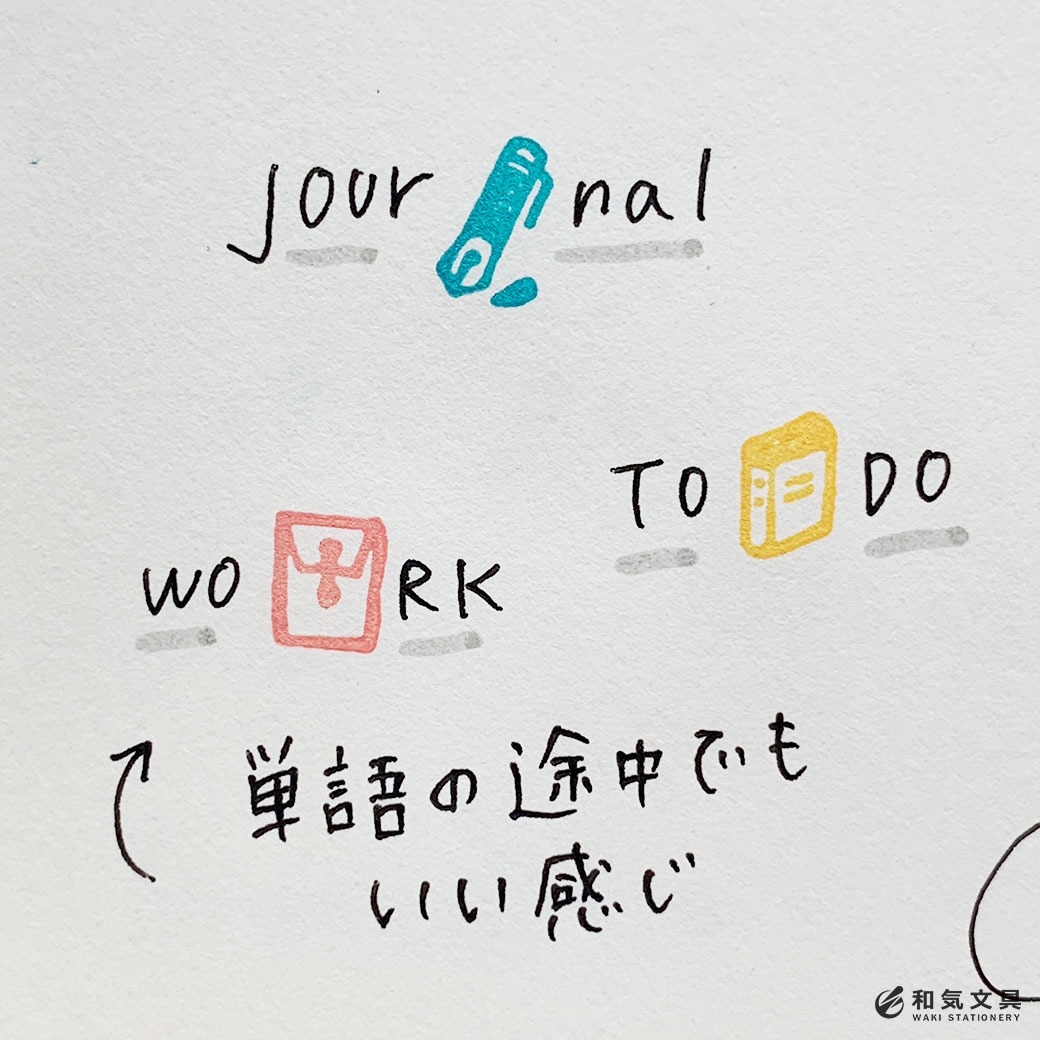 jour nal
TO DO
WO RK
単語の途中でも
いい感じ
和気文具
WAKI STATIONERY